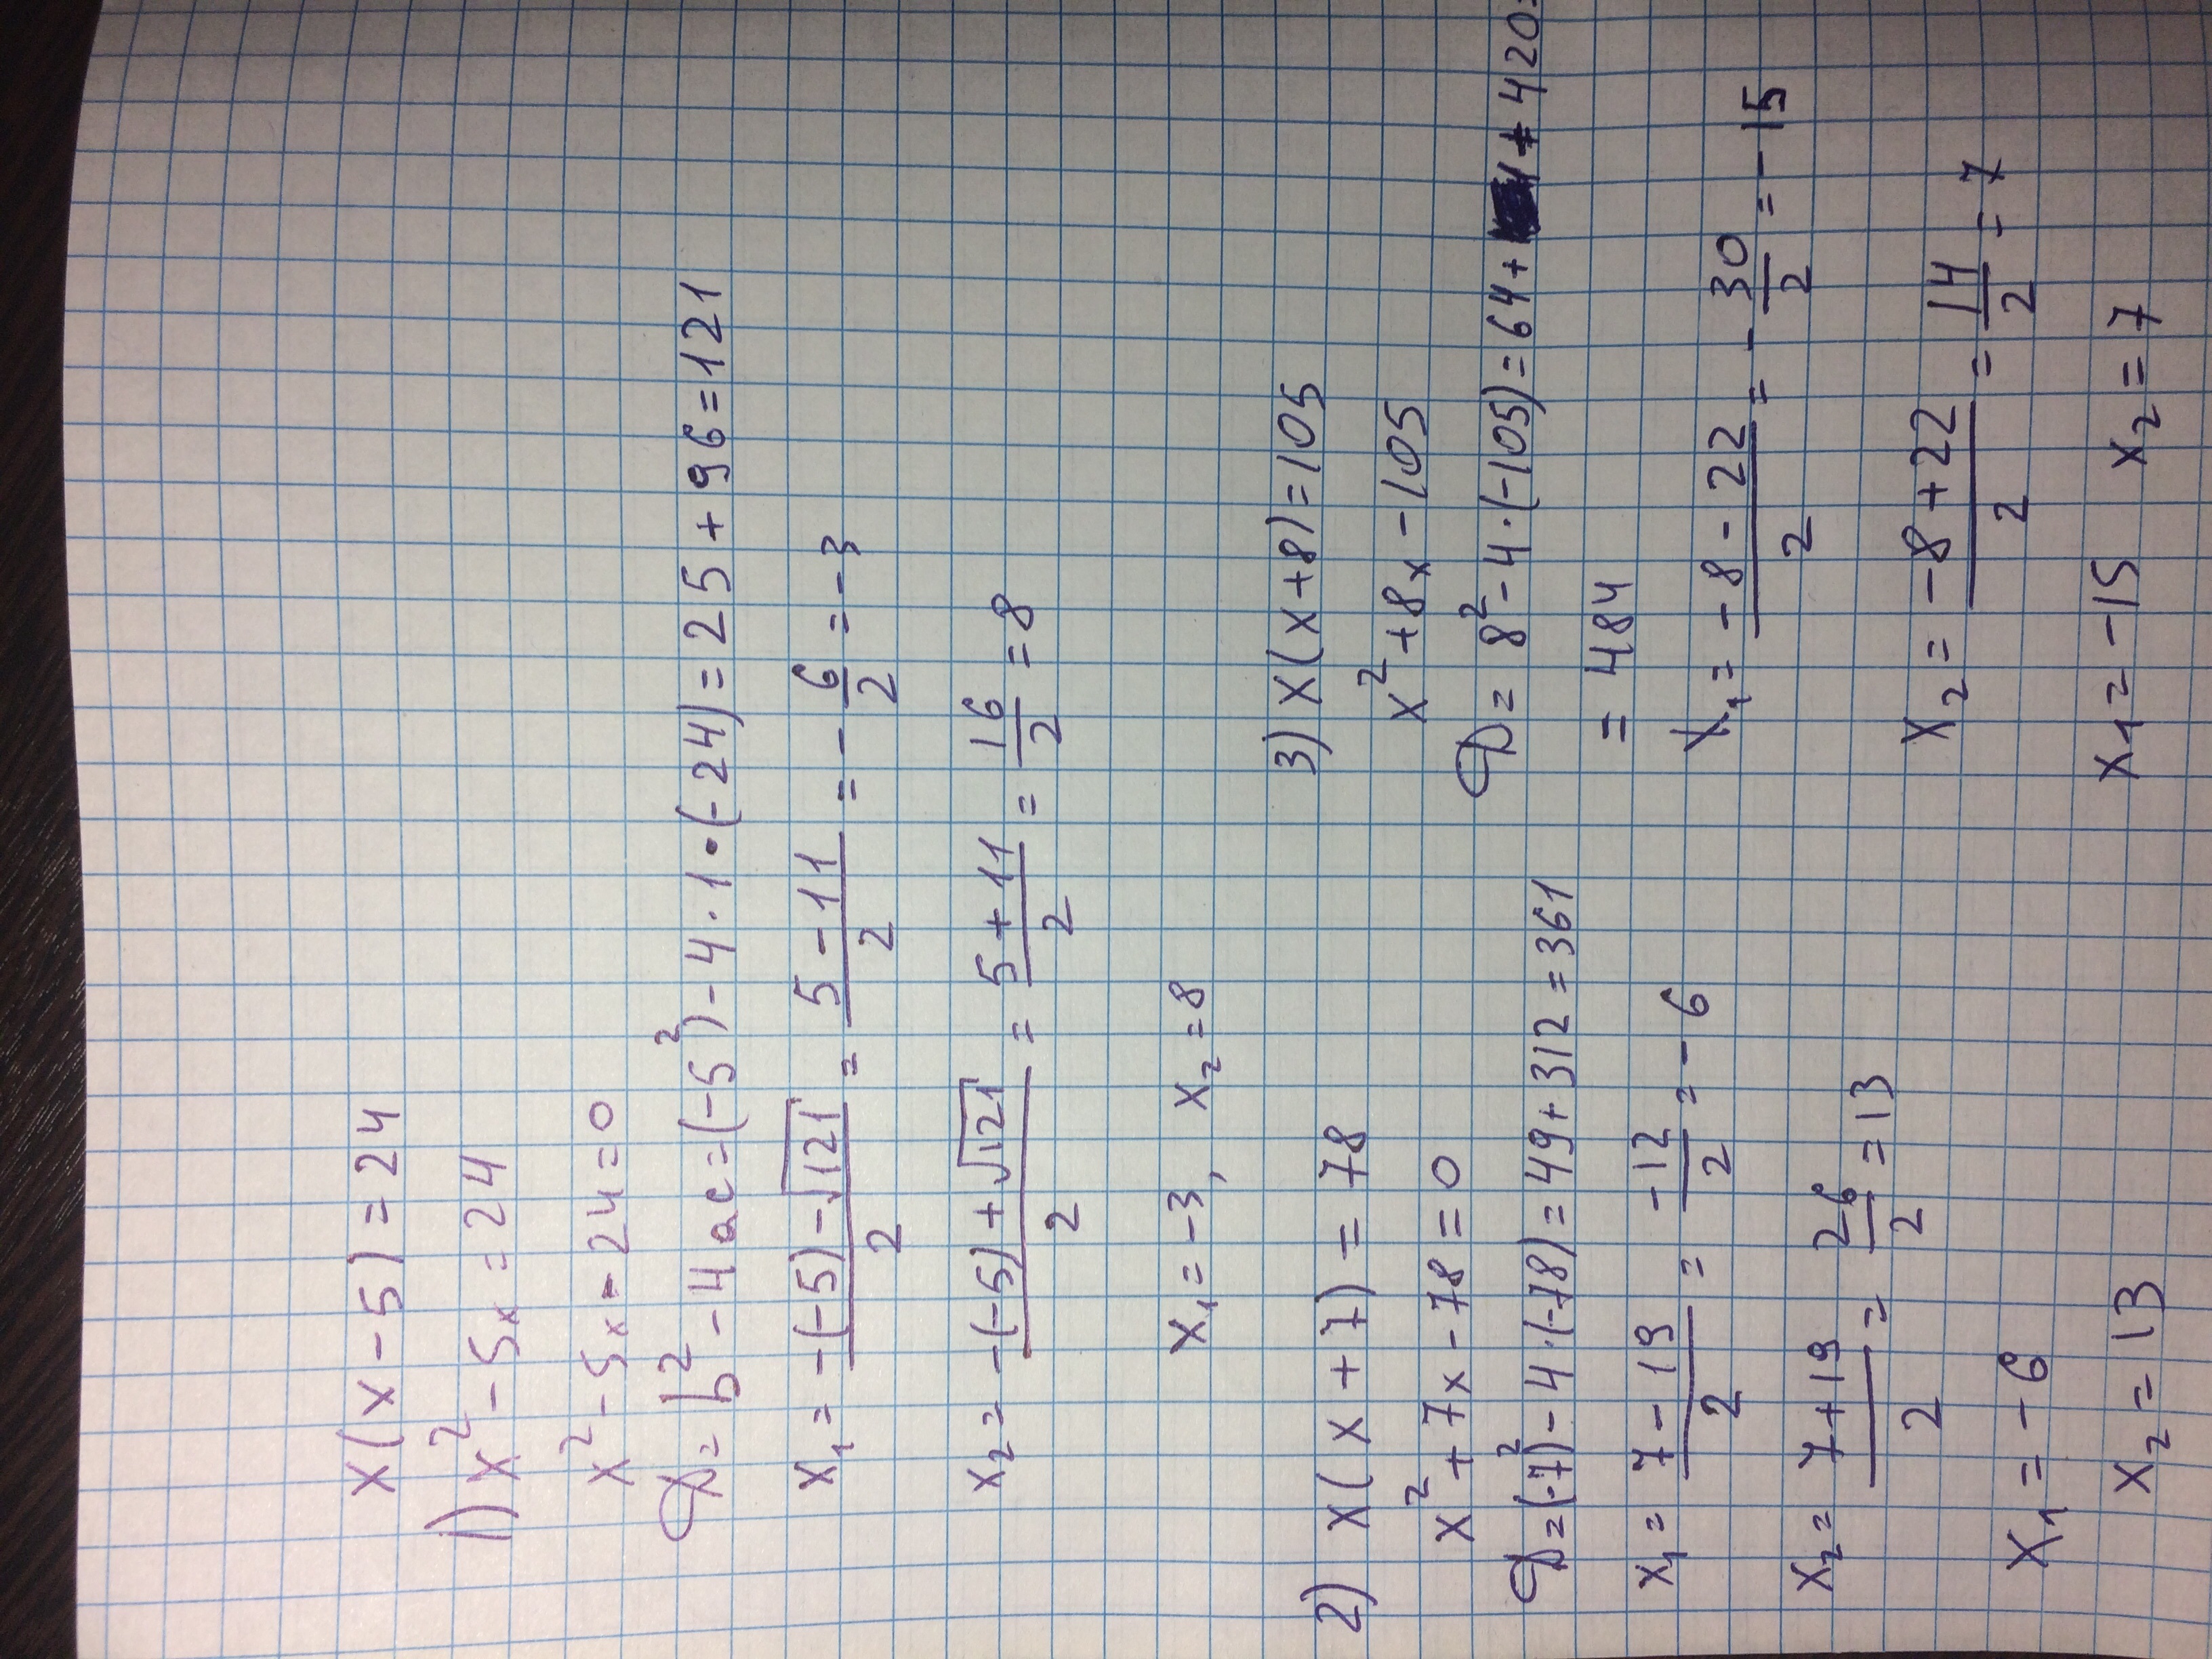 x(x-5)=24
1) x²-5x=24
x²-5x-24=0
D=b²-4ac=(-5²)-4·1·(-24)=25+96=121
x₁=-(-5)-√121/2=5-11/2=-6/2=-3
x₂=-(-5)+√121/2=5+11/2=16/2=8
x₁=-3, x₂=8
2) x(x+7)=78
x²+7x-78=0
D=(-7)²-4·(-78)=49+312=361
x₁=7-19/2=-12/2=-6
x₂=7+19/2=26/2=13
x₁=-6
x₂=13
3) x(x+8)=105
x²+8x-105
D=8²-4·(-105)=64+420=
=484
x₁=-8-22/2=-30/2=-15
x₂=-8+22/2=14/2=7
x₁=-15 x₂=7